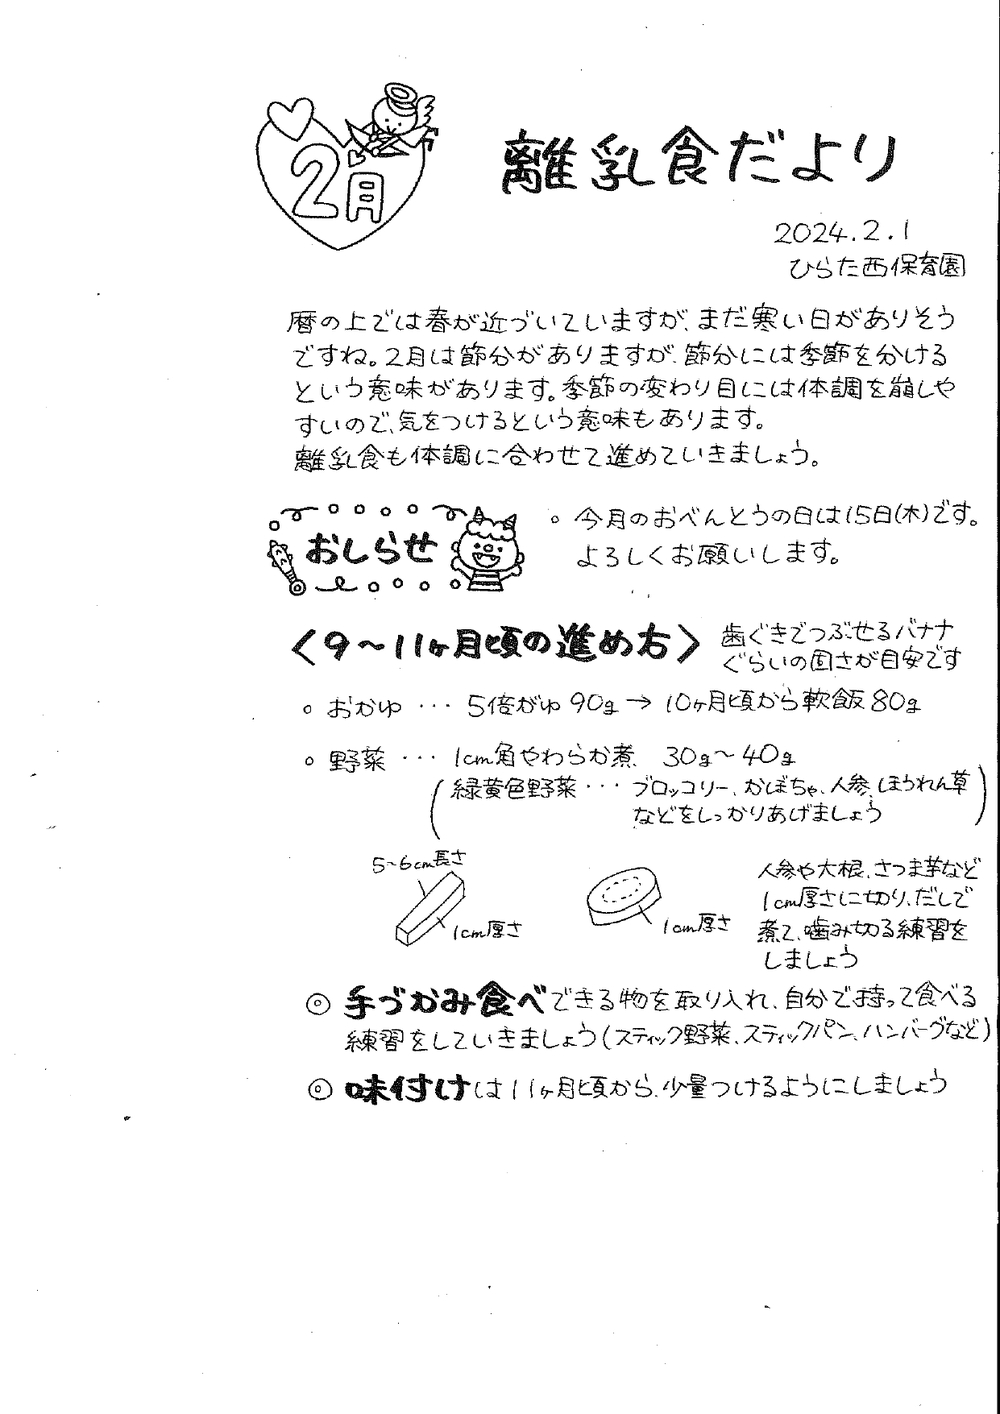 2月
離乳食だより
2024.2.1
ひらた西保育園
暦の上では春が近づいていますが、まだ寒い日がありそう
ですね。2月は節分がありますが、節分には季節を分ける
という意味があります。季節の変わり目には体調を崩しや
すいので、気をつけるという意味もあります。
離乳食も体調に合わせて進めていきましょう。
おしらせ
○ 今月のおべんとうの日は15日(木)です。
よろしくお願いします。
〈9〜11ヶ月頃の進め方〉
歯ぐきでつぶせるバナナ
ぐらいの固さが目安です
○ おかゆ ・・・ 5倍がゆ 90g → 10ヶ月頃から軟飯 80g
○ 野菜 ・・・ 1cm角やわらか煮 30g〜40g
(緑黄色野菜・・・ブロッコリー、かぼちゃ、人参、ほうれん草
などをしっかりあげましょう)
5~6cm長さ
1cm厚さ
1cm厚さ
人参や大根、さつま芋など
1cm厚さに切り、だしで
煮て、噛み切る練習を
しましょう
◎ 手づかみ食べできる物を取り入れ、自分で持って食べる
練習をしていきましょう(スティック野菜、スティックパン、ハンバーグなど)
◎ 味付けは11ヶ月頃から、少量つけるようにしましょう